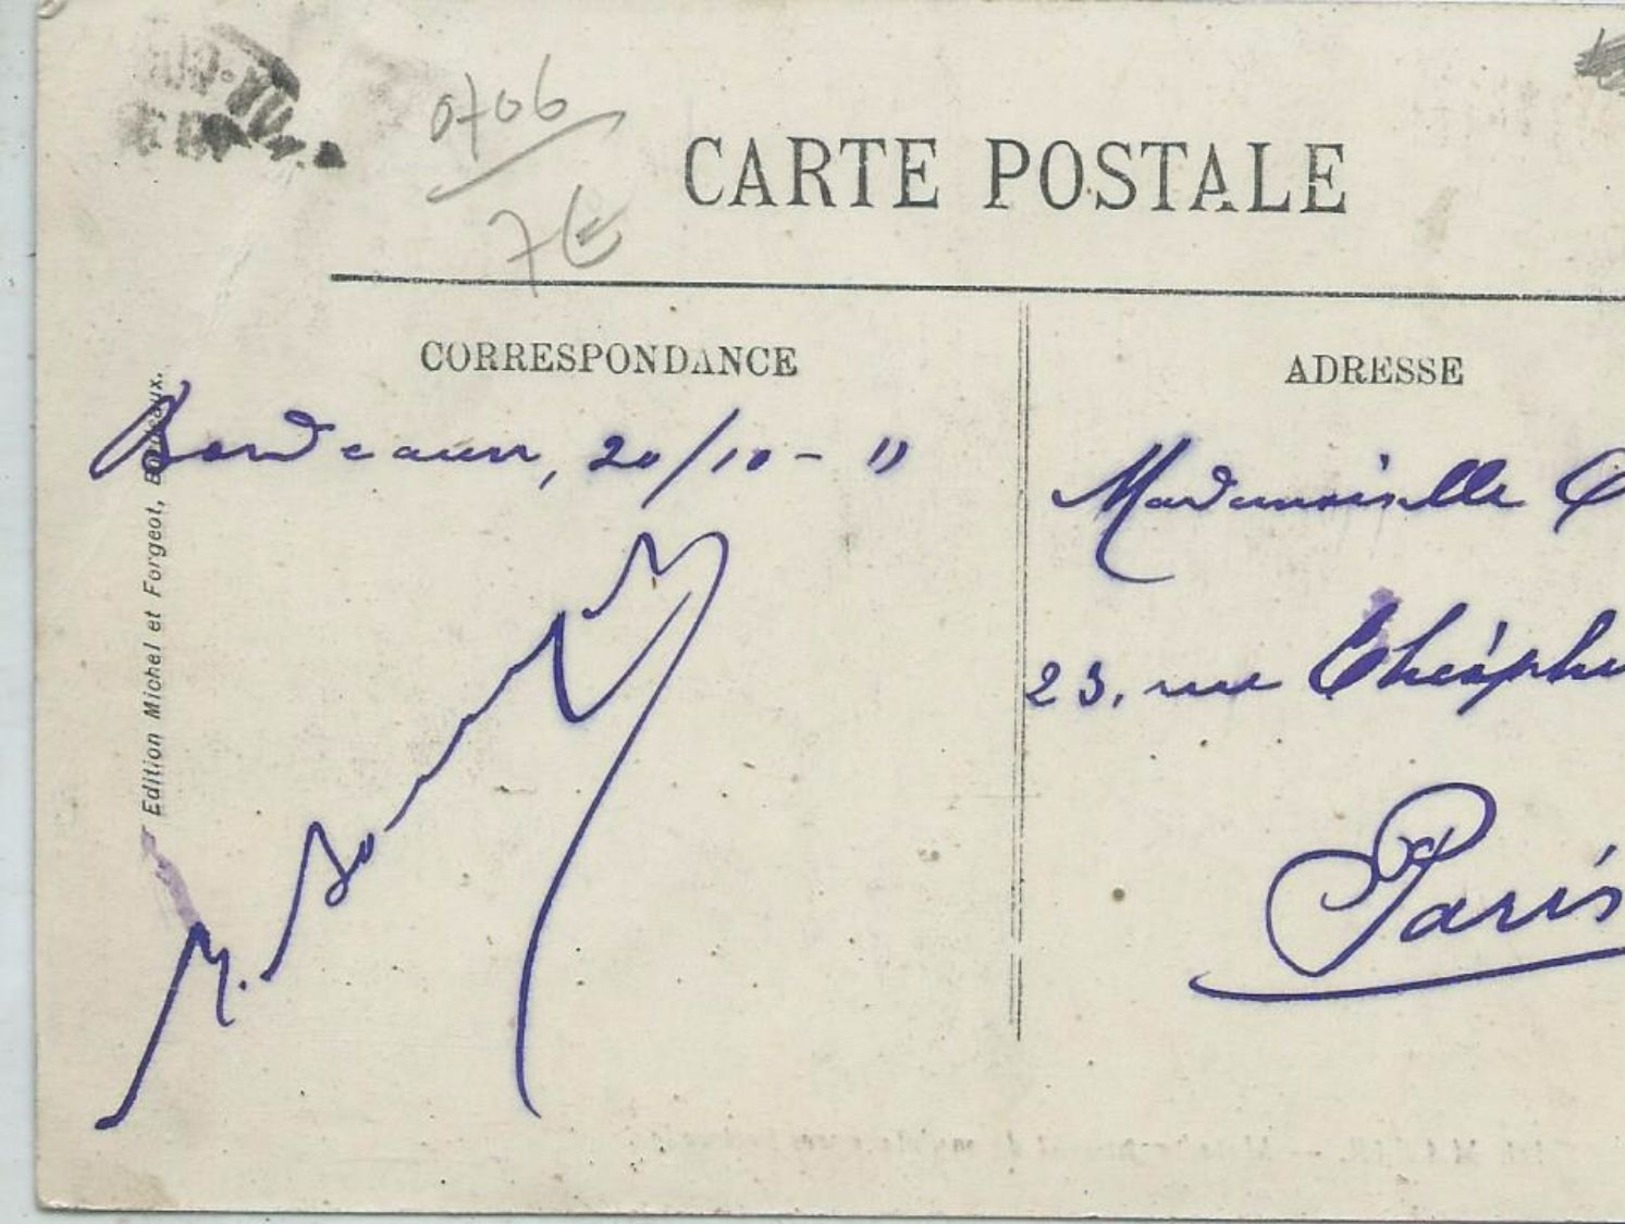 0706
7E
CARTE POSTALE
CORRESPONDANCE
ADRESSE
Edition Michel et Forgeot, Bordeaux.
Bordeaux, 20/10 - 11
Mademoiselle
23, rue Théophi
Paris
M.